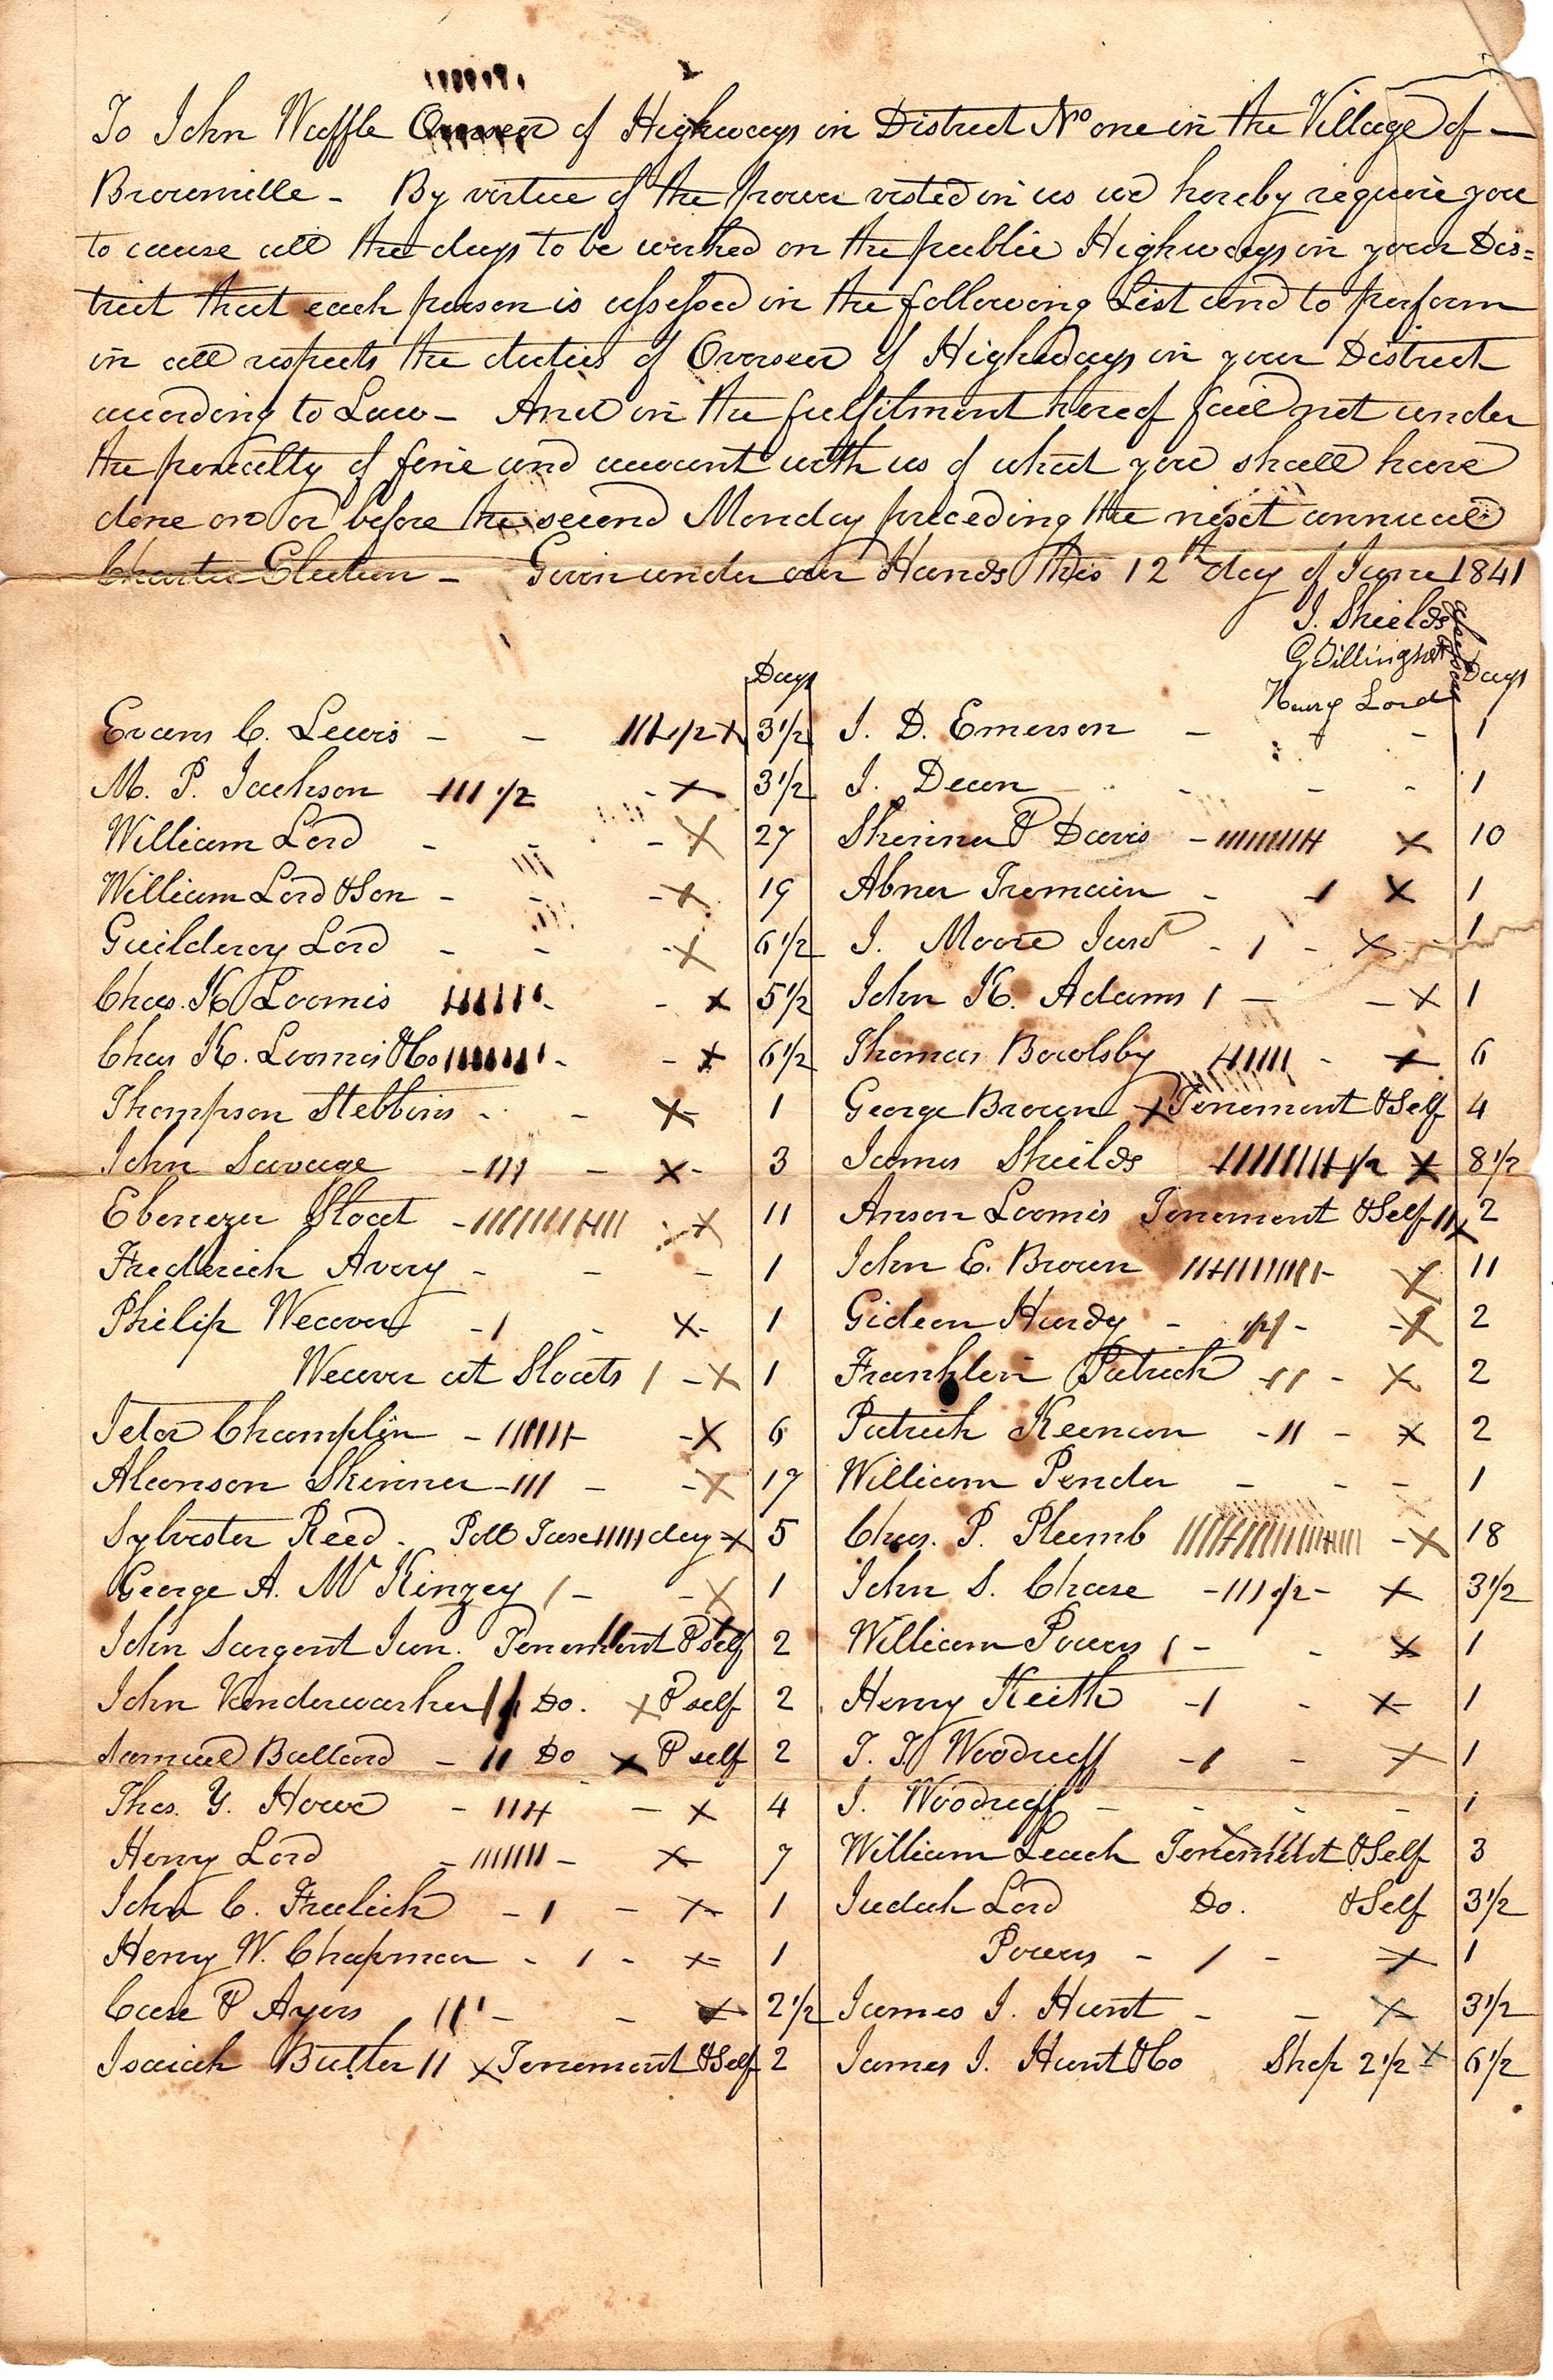 To John Waffle Overseer of Highways in District No one in the Village of
Brownville - By virtue of the power vested in us we hereby require you
to cause all the days to be worked on the public Highways in your Dis=
trict that each person is assessed in the following List and to perform
in all respects the duties of Overseer of Highways in your District
according to Law - And in the fulfilment hereof fail not under
the penalty of fine and account with us of what you shall have
done on or before the second Monday preceding the next annual
Charter Election - Given under our Hands this 12th day of June 1841
J. Shields
G Tillinghast
Henry Lord
Days
Days
Evans C. Lewis - - 1/2 x 3 1/2
M. P. Jackson 1/2 - x 3 1/2
William Lord - - - x 27
William Lord & Son - - - x 19
Guilderoy Lord - - - x 6 1/2
Chas. K Loomis - - x 5 1/2
Chas K. Loomis & Co - - x 6 1/2
Thompson Stebbins - - x 1
John Savage - - x - 3
Ebenezer Sloat - x 11
Frederick Avery - - - 1
Philip Weaver - - x - 1
Weaver at Sloats - x 1
Peter Champlin - - x 6
Alanson Skinner - - - x 17
Sylvester Reed - Poll Taxe day x 5
George A. McKinzey - - x 1
John Sargent Jun. Tenement & self 2
John Vanderwarker Do. x & self 2
Samuel Ballard - Do x & self 2
Thos. Y. Howe - - x 4
Henry Lord - - x 7
John C. Frelick - - x 1
Henry W. Chapman - - x 1
Case & Ayers - - x 2 1/2
Isaiah Butler x Tenement & Self 2
J. D. Emerson - - - 1
J. Dean - - - 1
Skinner & Davis - x 10
Abner Tremain - x 1
J. Moore Jun - - x 1
John K. Adams - - x 1
Thomas Bowlsby - x 6
George Brown x Tenement & Self 4
James Shields 1/2 x 8 1/2
Anson Loomis Tenement & Self x 2
John E. Brown - x 11
Gideon Hardy - - - x 2
Franklin Patrick - - x 2
Patrick Keenan - - x 2
William Pender - - - 1
Chas. P. Plumb - x 18
John S. Chase - 1/2 - x 3 1/2
William Powers - - x 1
Henry Keith - - x 1
T. T. Woodruff - - x 1
J. Woodruff - - - - 1
William Leach Tenement & Self 3
Judah Lord Do. & Self 3 1/2
Powers - - x 1
James J. Hunt - - x 3 1/2
James J. Hunt & Co Shop 2 1/2 x 6 1/2